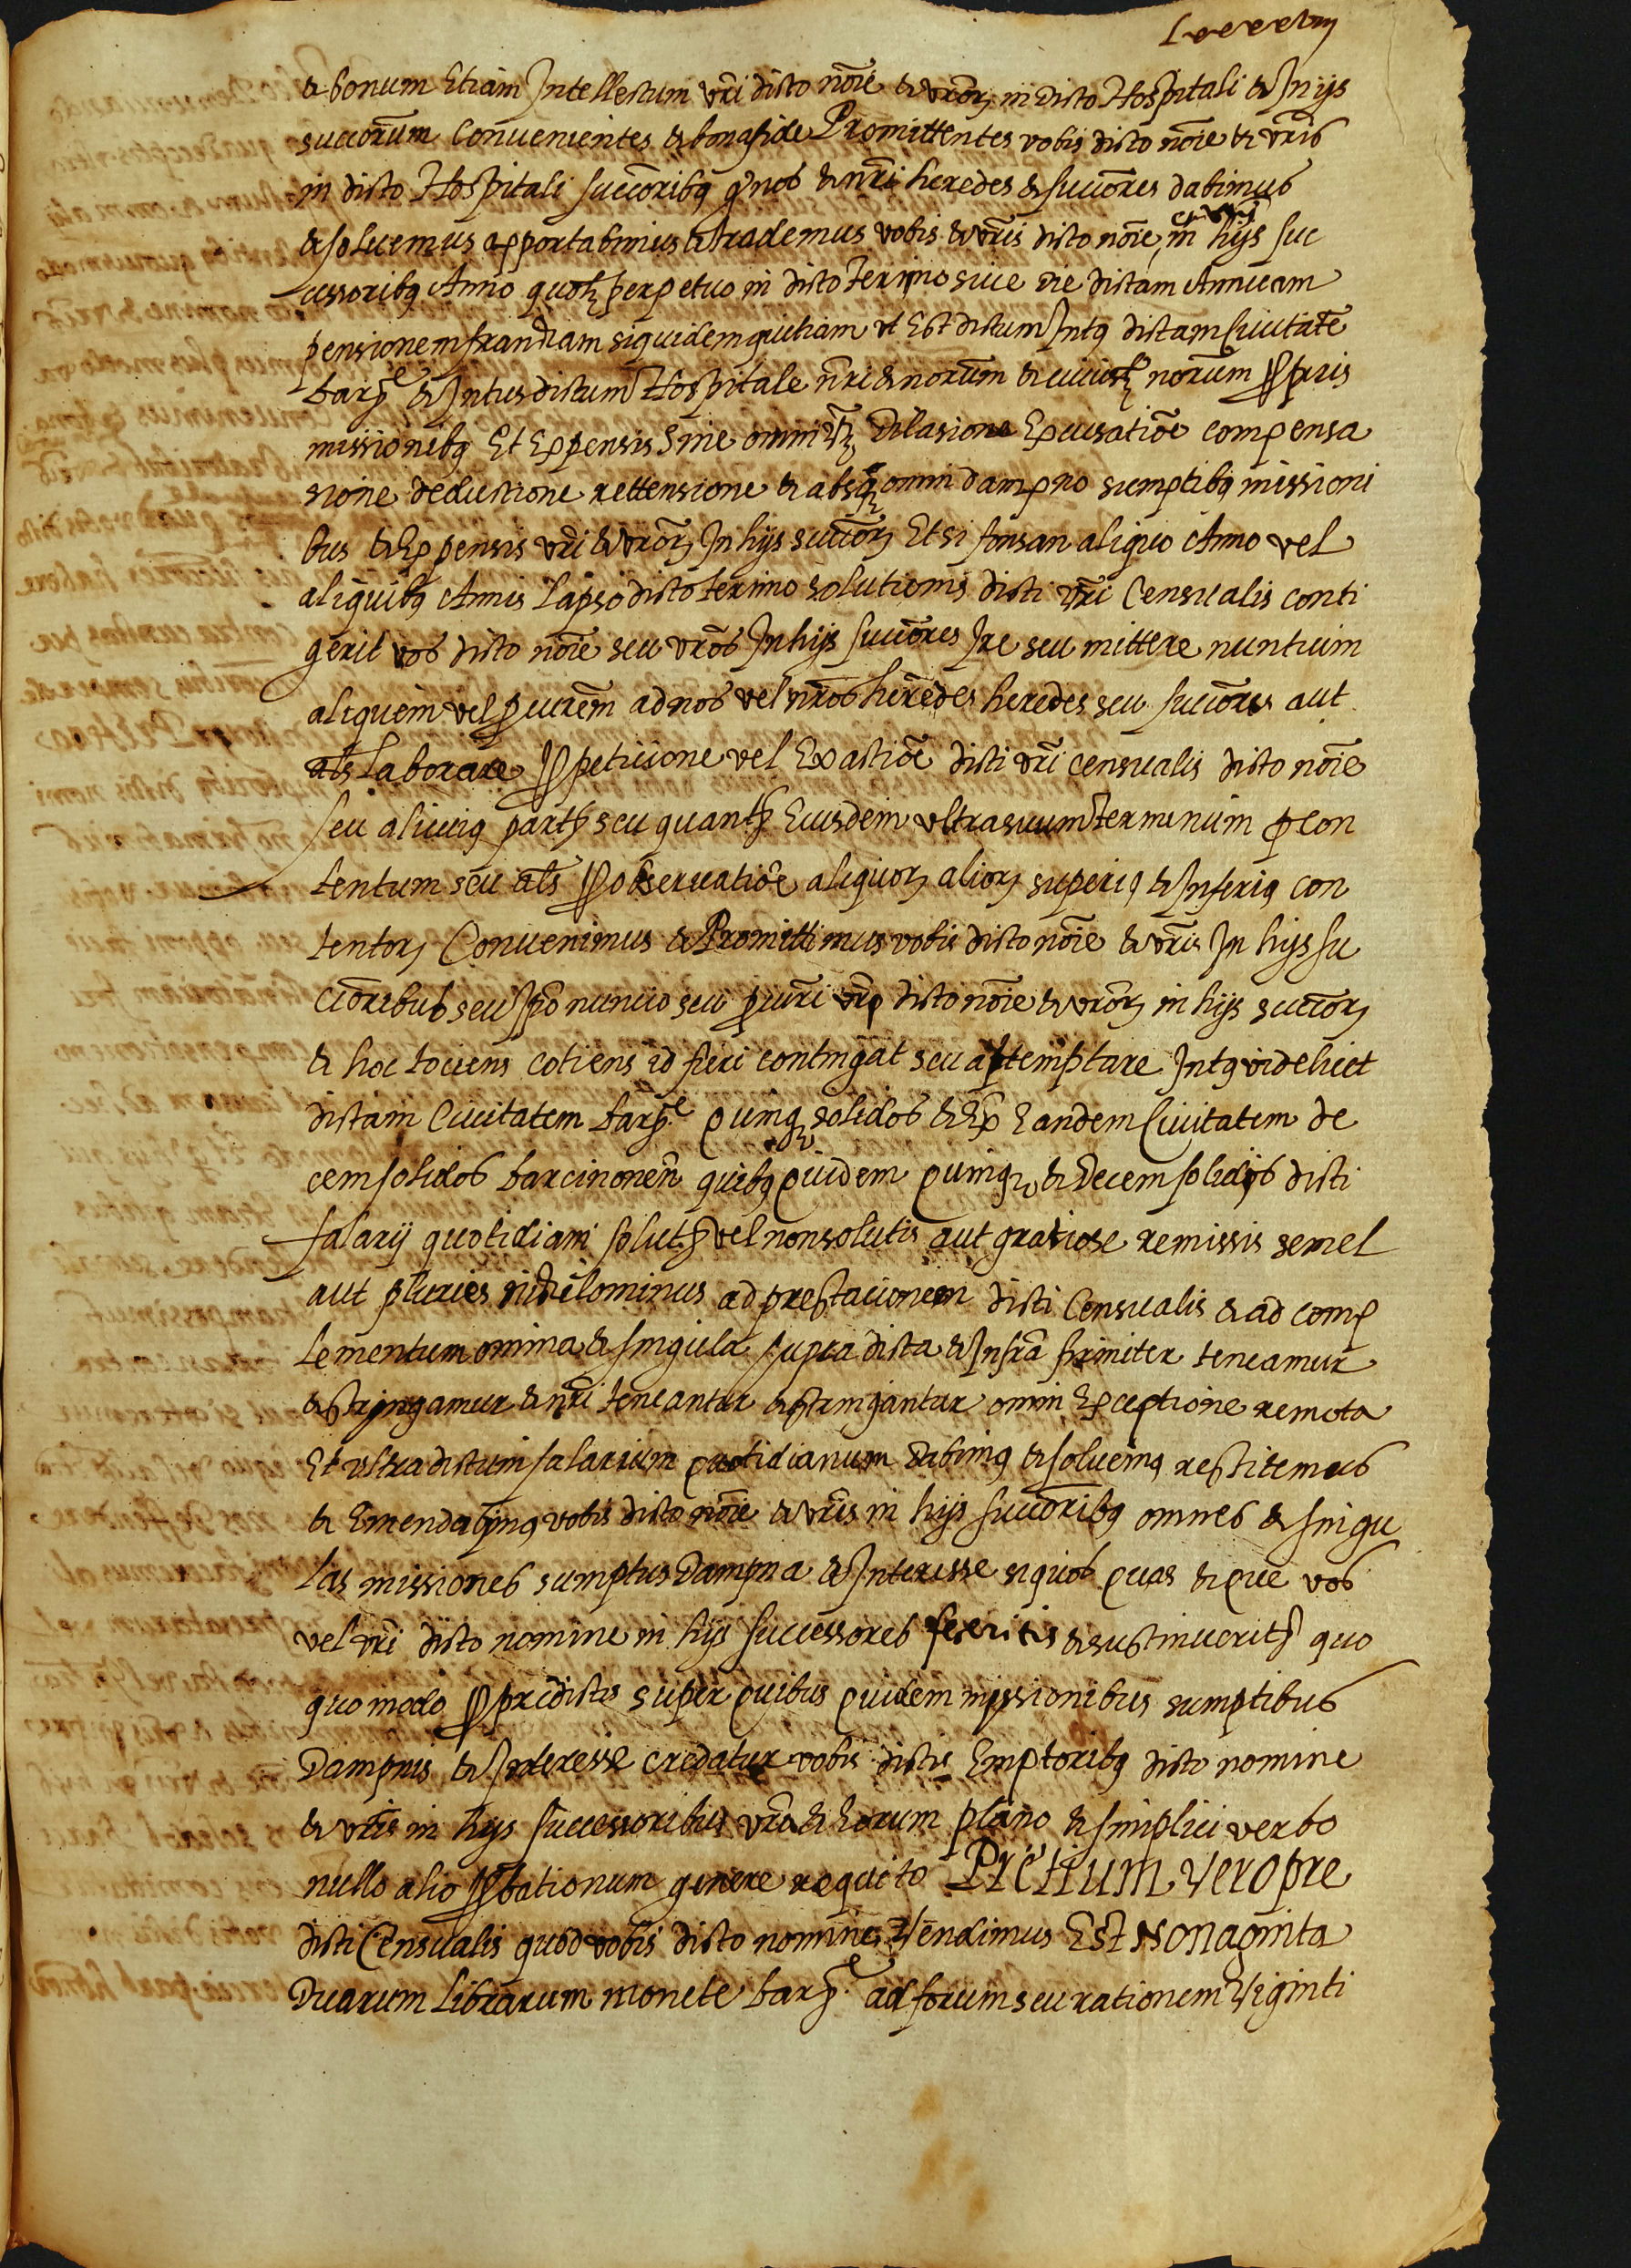 & bonum Etiam Intellectum vr̃i dicto nõie & vrõrꝫ in dicto Hospitali & In ijs
succõrum Convenientes & bonafide Promittentes vobis dicto nõie & vr̃is
in dicto Hospitali succõribꝫ q̃ nos & nr̃i heredes & succõres dabimus
& solvemus apportabimus & trademus vobis & vr̃is dicto nõie in hijs suc
cessoribꝫ Anno quolꝫ perpetuo in dicto termino sive die dictam Annuam
pensionem francham siquidem quitiam ut Est dictum Intꝫ dictam Civitatẽ
barẽ & Intus dictum Hospitale nr̃i & norũm & cuiuslꝫ norũm ꝓprijs
missionibꝫ Et Expensis Sine omni vꝫ dilasione Excusatiõe compensa
sione deductione rettensione & absqꝫ omni dampno sumptibꝫ missioni
bus & Expensis vr̃i & vrõrꝫ In hijs succõrꝫ Et si forsan aliquo Anno vel
aliquibꝫ Annis lapso dicto termino solutionis dicti vr̃i Censualis conti
gerit vos dicto nõie seu vrõs In hijs succõres Ire seu mittere nuntium
aliquem vel ꝓcurẽm ad nos vel nr̃os herẽdes heredes seu succõres aut
als̃ Laborare ꝓ petitione vel Exactiõe dicti vr̃i censualis dicto nõie
seu alicuiꝫ partꝭ seu quantꝭ Eiusdem ultra suum terminum ꝑ con
tentum seu als̃ ꝓ observatiõe aliquorꝫ aliorꝫ superiꝫ & Inferiꝫ con
tentorꝫ Convenimus & Promittimus vobis dicto nõie & vr̃is In hijs su
ccõribus seu ip̃o nuncio seu ꝓcurr̃i vr̃o dicto nõie & vrõrꝫ in hijs succõrꝫ
& hoc tociens cotiens id fieri contingat seu attemptare Intꝫ videlicet
dictam Civitatem barẽ quinqꝫ solidos & Ex Eandem Civitatem de
cem solidos barcinonen̄ quibꝫ quidem quinqꝫ & decem solidis dicti
salarij quotidiani solutꝭ vel non solutis aut gratiose remissis semel
aut pluries nichilominus ad prestacionem dicti Censualis & ad comp
lementum omnia & singula supra dicta & Infrã firmiter teneamur
astringamur & nr̃i teneantur astringantur omni Exceptione remota
Et ultra dictum salarium quotidianum dabimꝫ & solvemꝫ restitemus
& Emendabimꝫ vobis dicto nõie & vr̃is in hijs succõribꝫ omnes & singu
las missiones sumptus dampna & Interesse si quos quas & que vos
vel vr̃i dicto nomine in hijs successores feceritis & sustinueritꝭ quo
quomodo ꝓ predictis super quibus quidem missionibus sumptibus
dampnis & Interesse credatur vobis dictis Emptoribꝫ dicto nomine
& vr̃is in hijs successoribus vr̃o & Eorum plano & simplici verbo
nullo alio ꝓbationum genere requito Pretium vero pre
dicti Censualis quod vobis dicto nomine Vendimus Est Nonaginta
Duarum librarum monete barẽ ad forum seu rationem Viginti